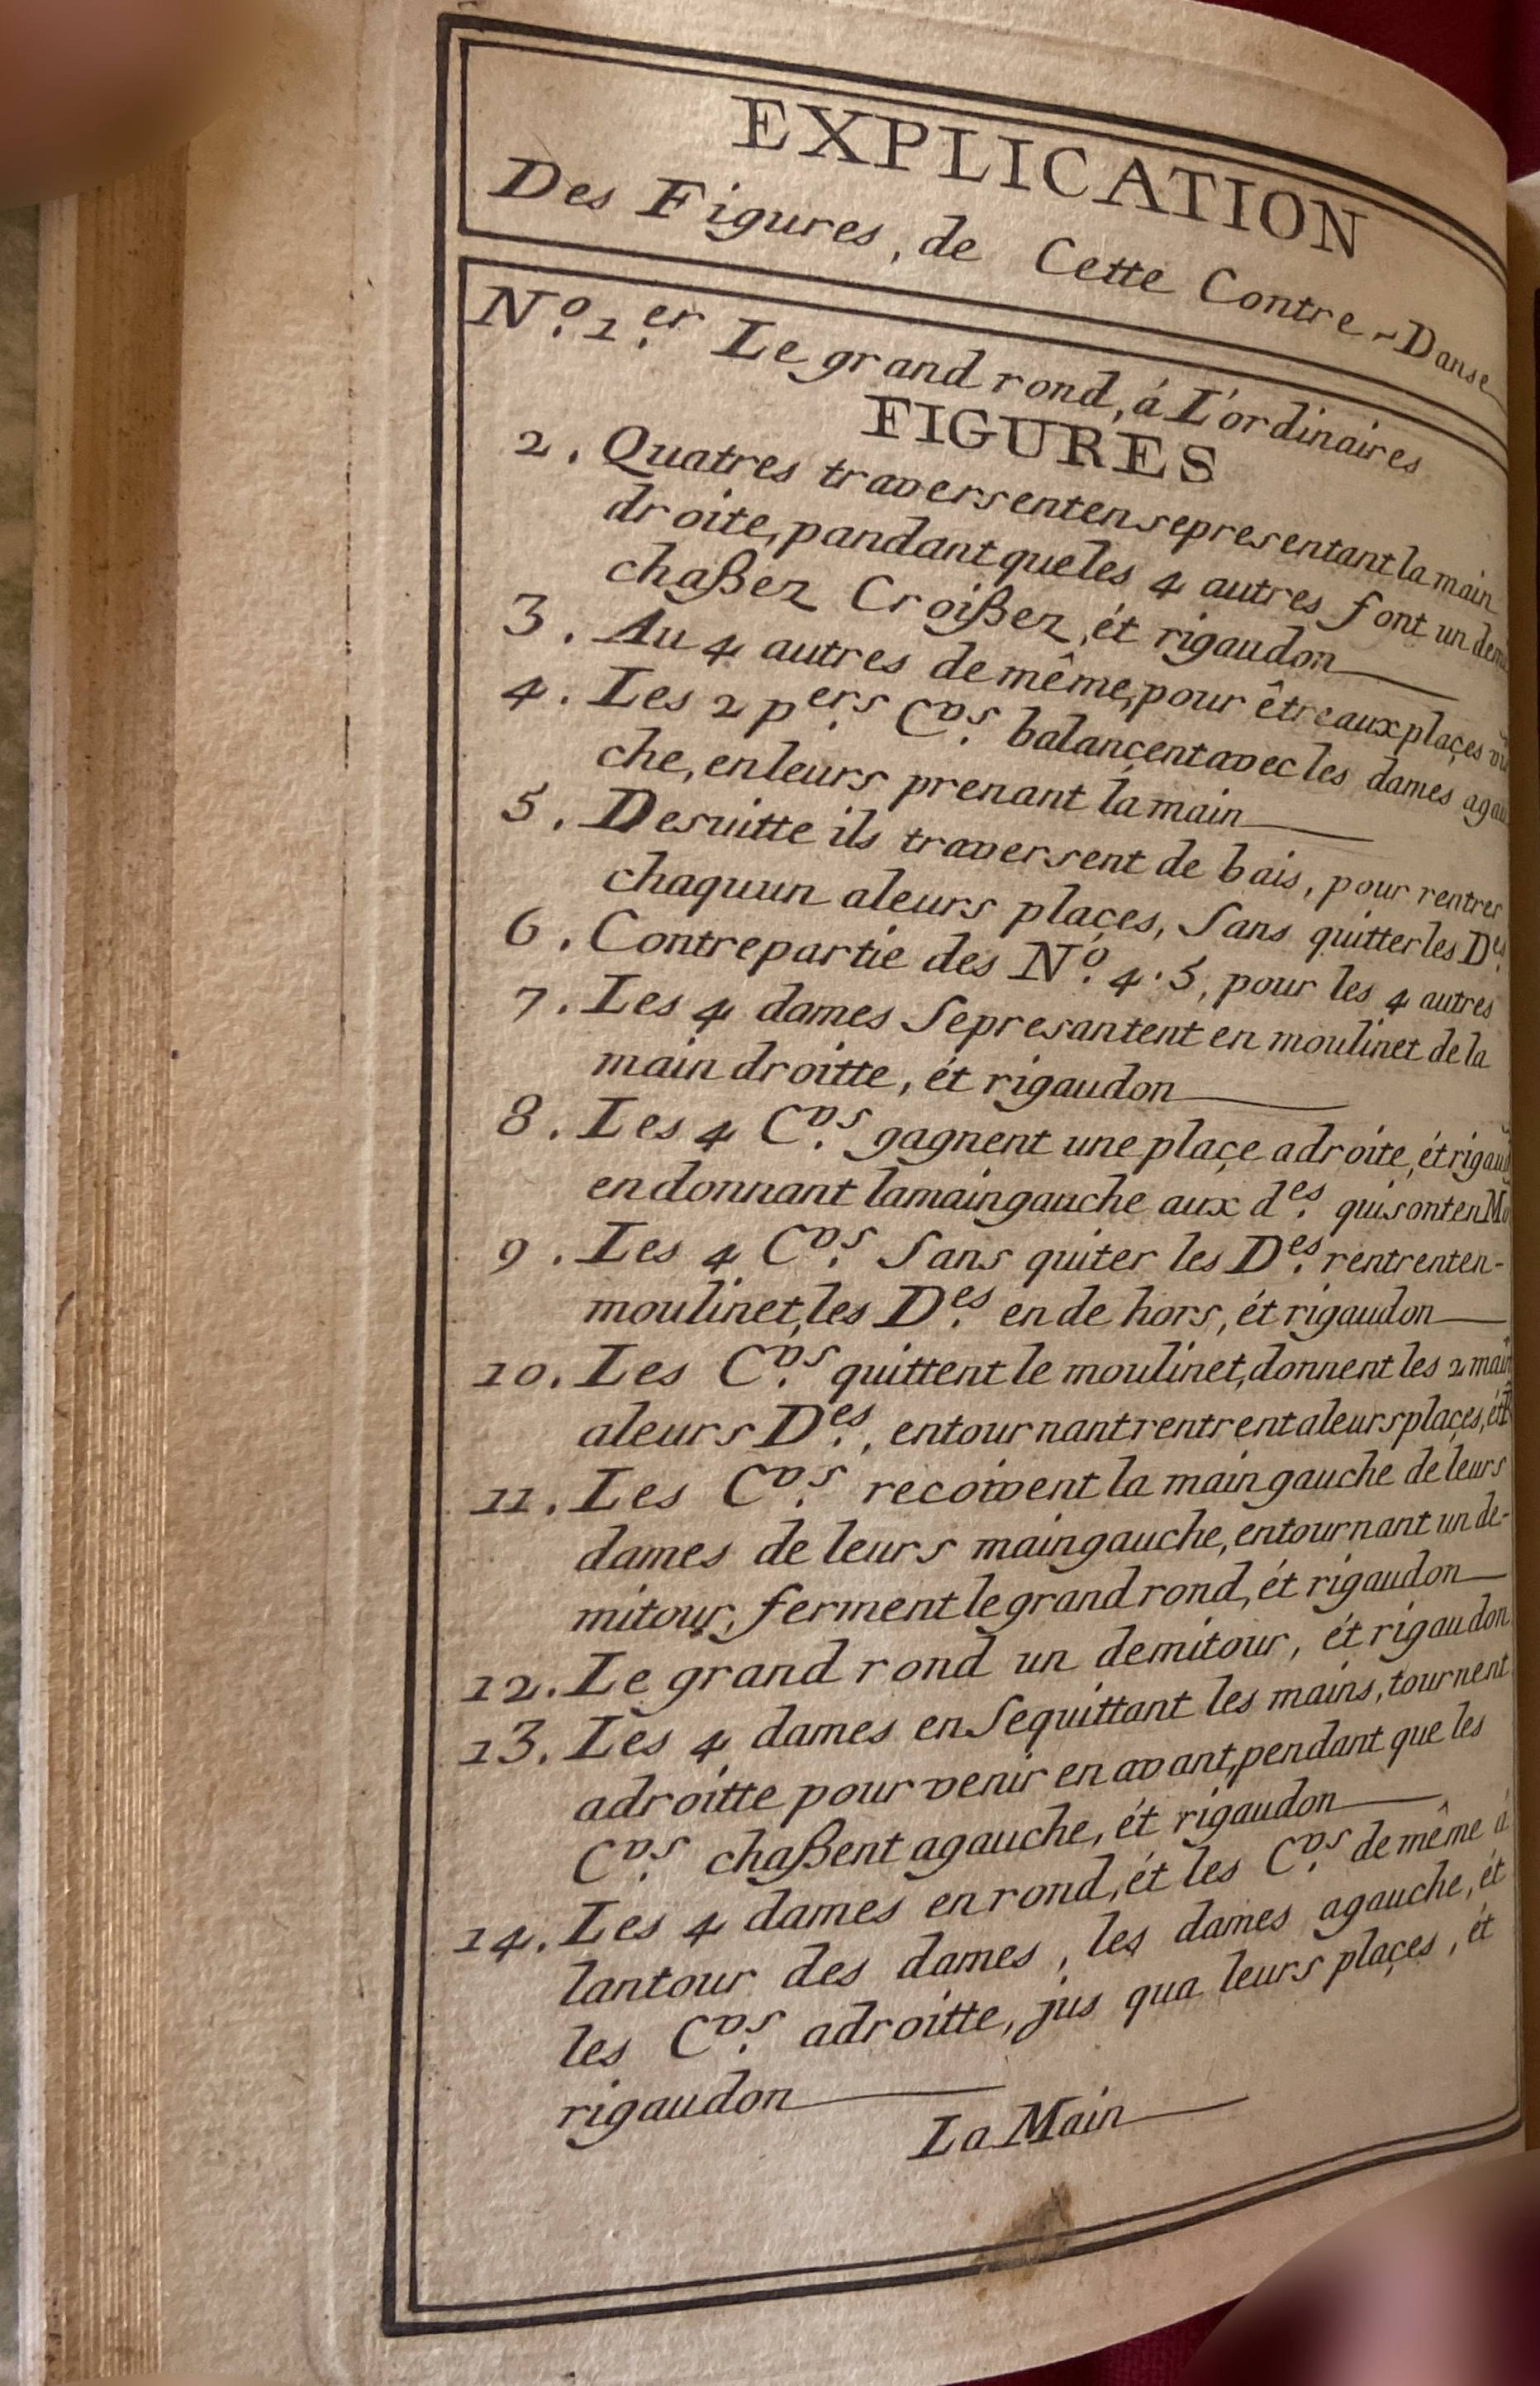 EXPLICATION
Des Figures, de Cette Contre-Danse
Nº. 1.er Le grand rond, á L'ordinaires
FIGURES
2. Quatres traversent en se presentant la main
droite, pandant que les 4 autres font un demi
chaßez Croißez, ét rigaudon
3. Au 4 autres de même, pour être aux plaçes
4. Les 2 p.ers C.vs balançent avec les dames agau
che, en leurs prenant la main
5. Desuitte ils traversent de bais, pour rentrer
chaquun a leurs plaçes, Sans quitter les D.es
6. Contrepartie des Nº. 4. 5, pour les 4 autres
7. Les 4 dames Se presantent en moulinet de la
main droitte, ét rigaudon
8. Les 4 C.vs gagnent une plaçe adroite, ét rigau
en donnant la main gauche aux d.es qui sont en
9. Les 4 C.vs Sans quiter les D.es rentrent en-
moulinet, les D.es en de hors, ét rigaudon
10. Les C.vs quittent le moulinet, donnent les 2 main
a leurs D.es, en tournant rentrent a leurs plaçes, ét
11. Les C.vs recoivent la main gauche de leurs
dames de leurs main gauche, en tournant un de-
mitour, ferment le grand rond, ét rigaudon
12. Le grand rond un demitour, ét rigaudon
13. Les 4 dames en Se quittant les mains, tournent
adroitte pour venir en avant, pendant que les
C.vs chaßent agauche, ét rigaudon
14. Les 4 dames en rond, ét les C.vs de même á
lantour des dames, les dames agauche, ét
les C.vs adroitte, jus qua leurs plaçes, ét
rigaudon
La Main